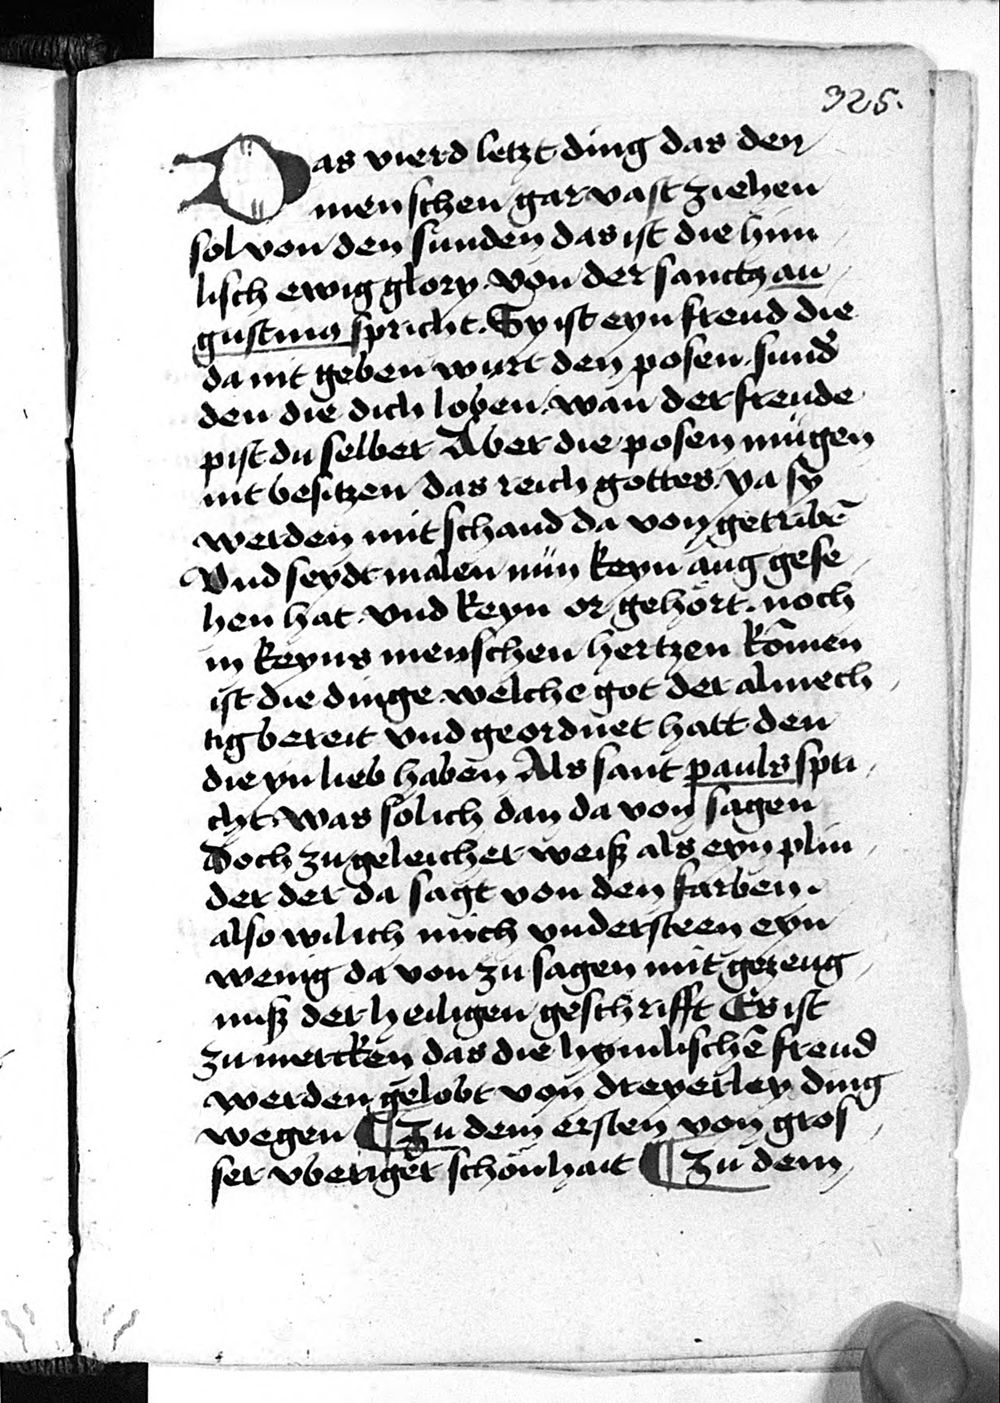 325.
Das vierd letzt ding das den
menschen gar vast ziehen
sol von den sunden das ist die him
lisch ewig glory von der sanctus au
gustinus spricht. Sy ist eyn freud die
da nit geben wurt den posen sund̉
den die dich loben. wan der freude
pist du selber Aber die posen mügen
nit besitzen das reich gottes. ya sy
werden mit schand da von getribē
Vnd seydt malen nün keyn aug gese
hen hat. vnd keyn or gehört. noch
in keyns menschen hertzen kōmen
ist die dinge welche got der almech
tig bereit vnd geordnet hatt den
die yn lieb haben Als sant pauls spri
cht. was sol ich dan da von sagen
Doch zu geleicher weiß als eyn plin
der der da sagt von den farben.
also wil ich mich vndersteen eyn
wenig da von zu sagen mit gezeug
nuß der heiligen geschrifft Es ist
zu mercken das die hymlischē freud
werden gelobt von dreyerley ding
wegen ¶ Zu dem ersten von gros
ser vberiger schönhait ¶ Zu dem